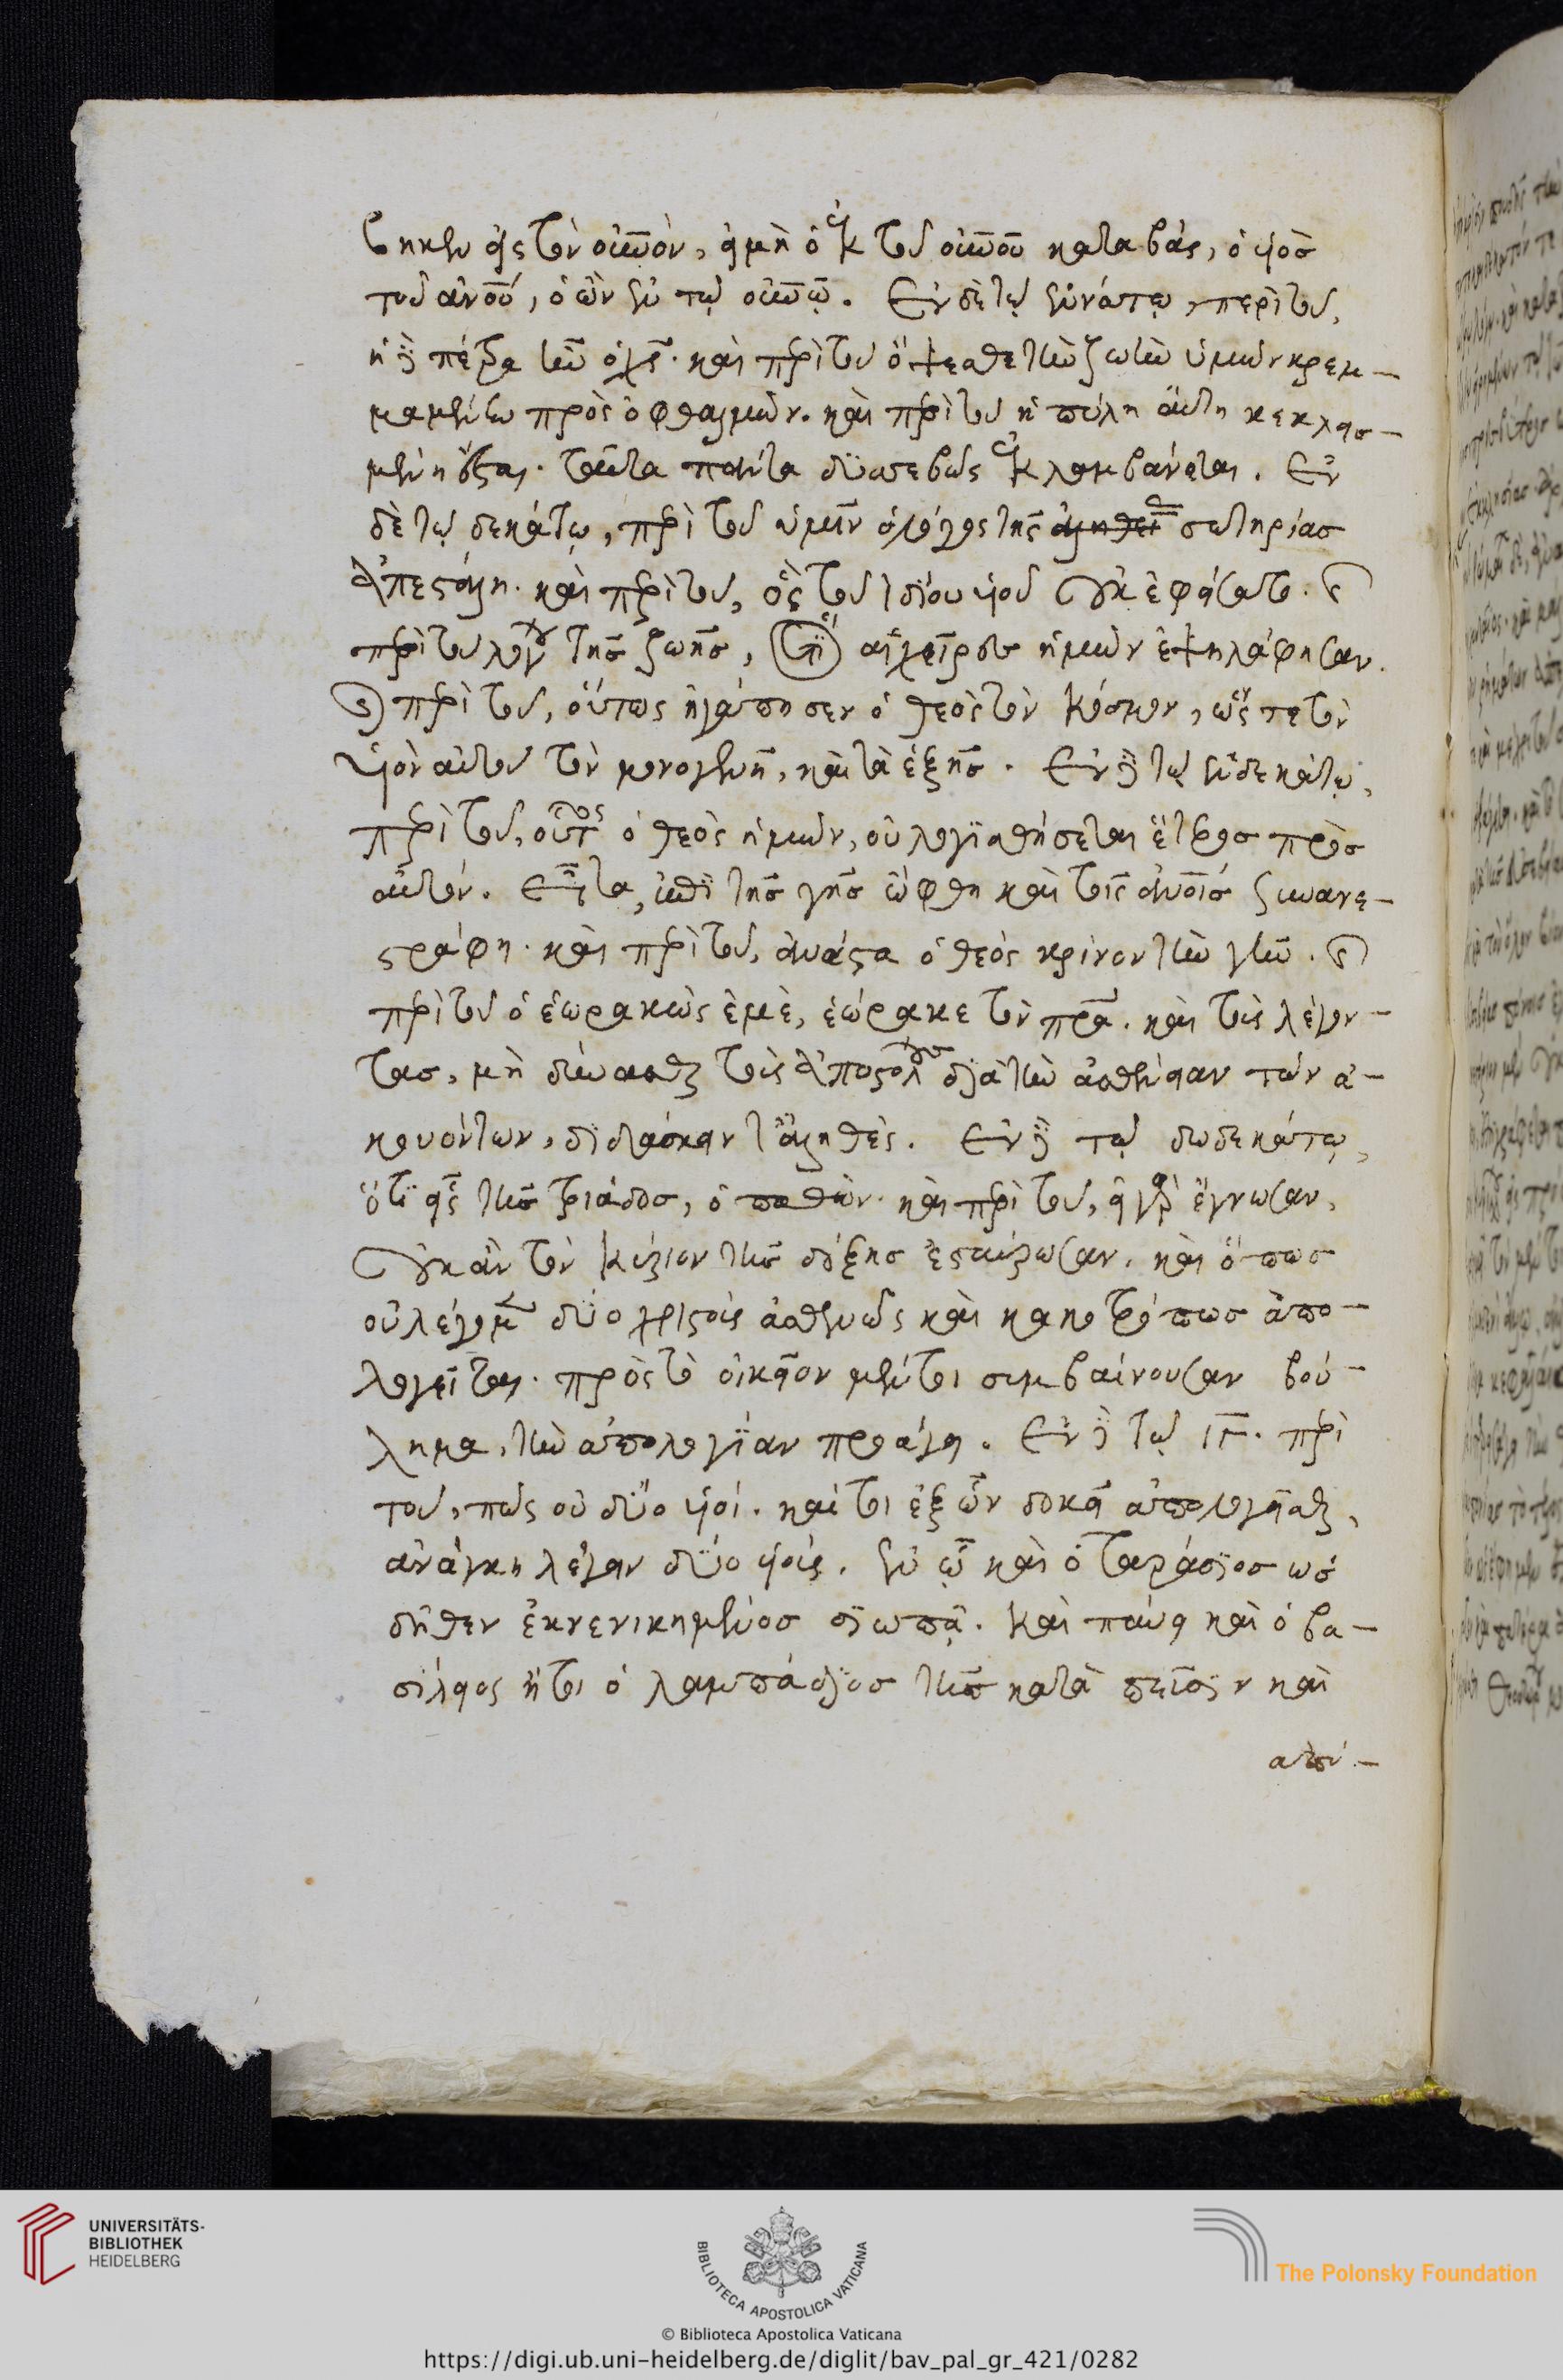 βηκεν εἰς τὸν οὐνὸν, εἰμὴ ὁ ἐκ τοῦ οὐνοῦ καταβὰς, ὁ υἱὸσ
τοῦ ἀνοῦ, ὁ ὢν ἐν τῷ οὐνῷ. Ἐν δὲ τῷ ἐννάτῳ, περὶ τοῦ,
ἡ δὲ πέτρα ἦν ὁ χς. καὶ περὶ τοῦ ὄψεσθε τὴν ζωὴν ὑμῶν κρεμ-
μαμένην πρὸς ὀφθαλμῶν. καὶ περὶ τοῦ ἡ πύλη αὕτη κεκλεισ-
μένη ἔσται. ταῦτα πάντα δυσσεβῶς ἐκλαμβάνεται. Ἐν
δὲ τῷ δεκάτῳ, περὶ τοῦ ὑμῖν ὁ λόγος τῆς σωτηρίασ
ἀπεστάλη. καὶ περὶ τοῦ, ὃς τοῦ ἰδίου υἱοῦ οὐκ ἐφείσατο. καὶ
περὶ τοῦ λόγου τῆσ ζωῆσ, ὅτι αἱ χεῖρεσ ἡμῶν ἐψηλάφησαν.
καὶ περὶ τοῦ, οὕτως ἠγάπησεν ὁ θεὸς τὸν κόσμον, ὥστε τὸν
υἱὸν αὐτοῦ τὸν μονογενῆ, καὶ τὰ ἑξῆσ. Ἐν δὲ τῷ ἑνδεκάτῳ,
περὶ τοῦ, οὗτος ὁ θεὸς ἡμῶν, οὐ λογισθήσεται ἕτεροσ πρὸσ
αὐτόν. Εἶτα, ἐπὶ τῆσ γῆσ ὤφθη καὶ τοῖς ἀνοισ συνανε-
στράφη. καὶ περὶ τοῦ, ἀνάστα ὁ θεός κρῖνον τὴν γῆν. καὶ
περὶ τοῦ ὁ ἑωρακὼς ἐμὲ, ἑώρακε τὸν πρα. καὶ τοὺς λέγον-
τασ, μὴ δύνασθαι τοὺς ἀποστόλους διὰ τὴν ἀσθένειαν τῶν ἀ-
κουόντων, διδάσκειν τἀληθές. Ἐν δὲ τῷ δωδεκάτῳ,
ὅτι εἷς τῆσ τριάδοσ, ὁ παθών. καὶ περὶ τοῦ, εἰ γὰρ ἔγνωσαν,
οὐκ ἂν τὸν κύριον τῆσ δόξησ ἐσταύρωσαν. καὶ ὅπωσ
οὐ λέγομεν δύο χριστοὺς ἀσθενῶς καὶ κακοτρόπωσ ἀπο-
λογεῖται. πρὸς τὸ οἰκεῖον μέντοι συμβαίνουσαν βού-
λημα, τὴν ἀπολογίαν προάγει. Ἐν δὲ τῷ ιγ. περὶ
τοῦ, πῶς οὐ δύο υἱοί. καίτοι ἐξ ὧν δοκεῖ ἀπολογεῖσθαι,
ἀνάγκη λέγειν δύο υἱούς. ἐν ᾧ καὶ ὁ ταράσιοσ ὡσ
δῆθεν ἐκνενικημένοσ σιωπᾷ. καὶ παύει καὶ ὁ βα-
σίλειος ἤτοι ὁ λαμπάδιοσ τῆσ κατὰ πεῦσιν καὶ
ἀπό-
UNIVERSITÄTS-
BIBLIOTHEK
HEIDELBERG
BIBLIOTECA APOSTOLICA VATICANA
© Biblioteca Apostolica Vaticana
The Polonsky Foundation
https://digi.ub.uni-heidelberg.de/diglit/bav_pal_gr_421/0282